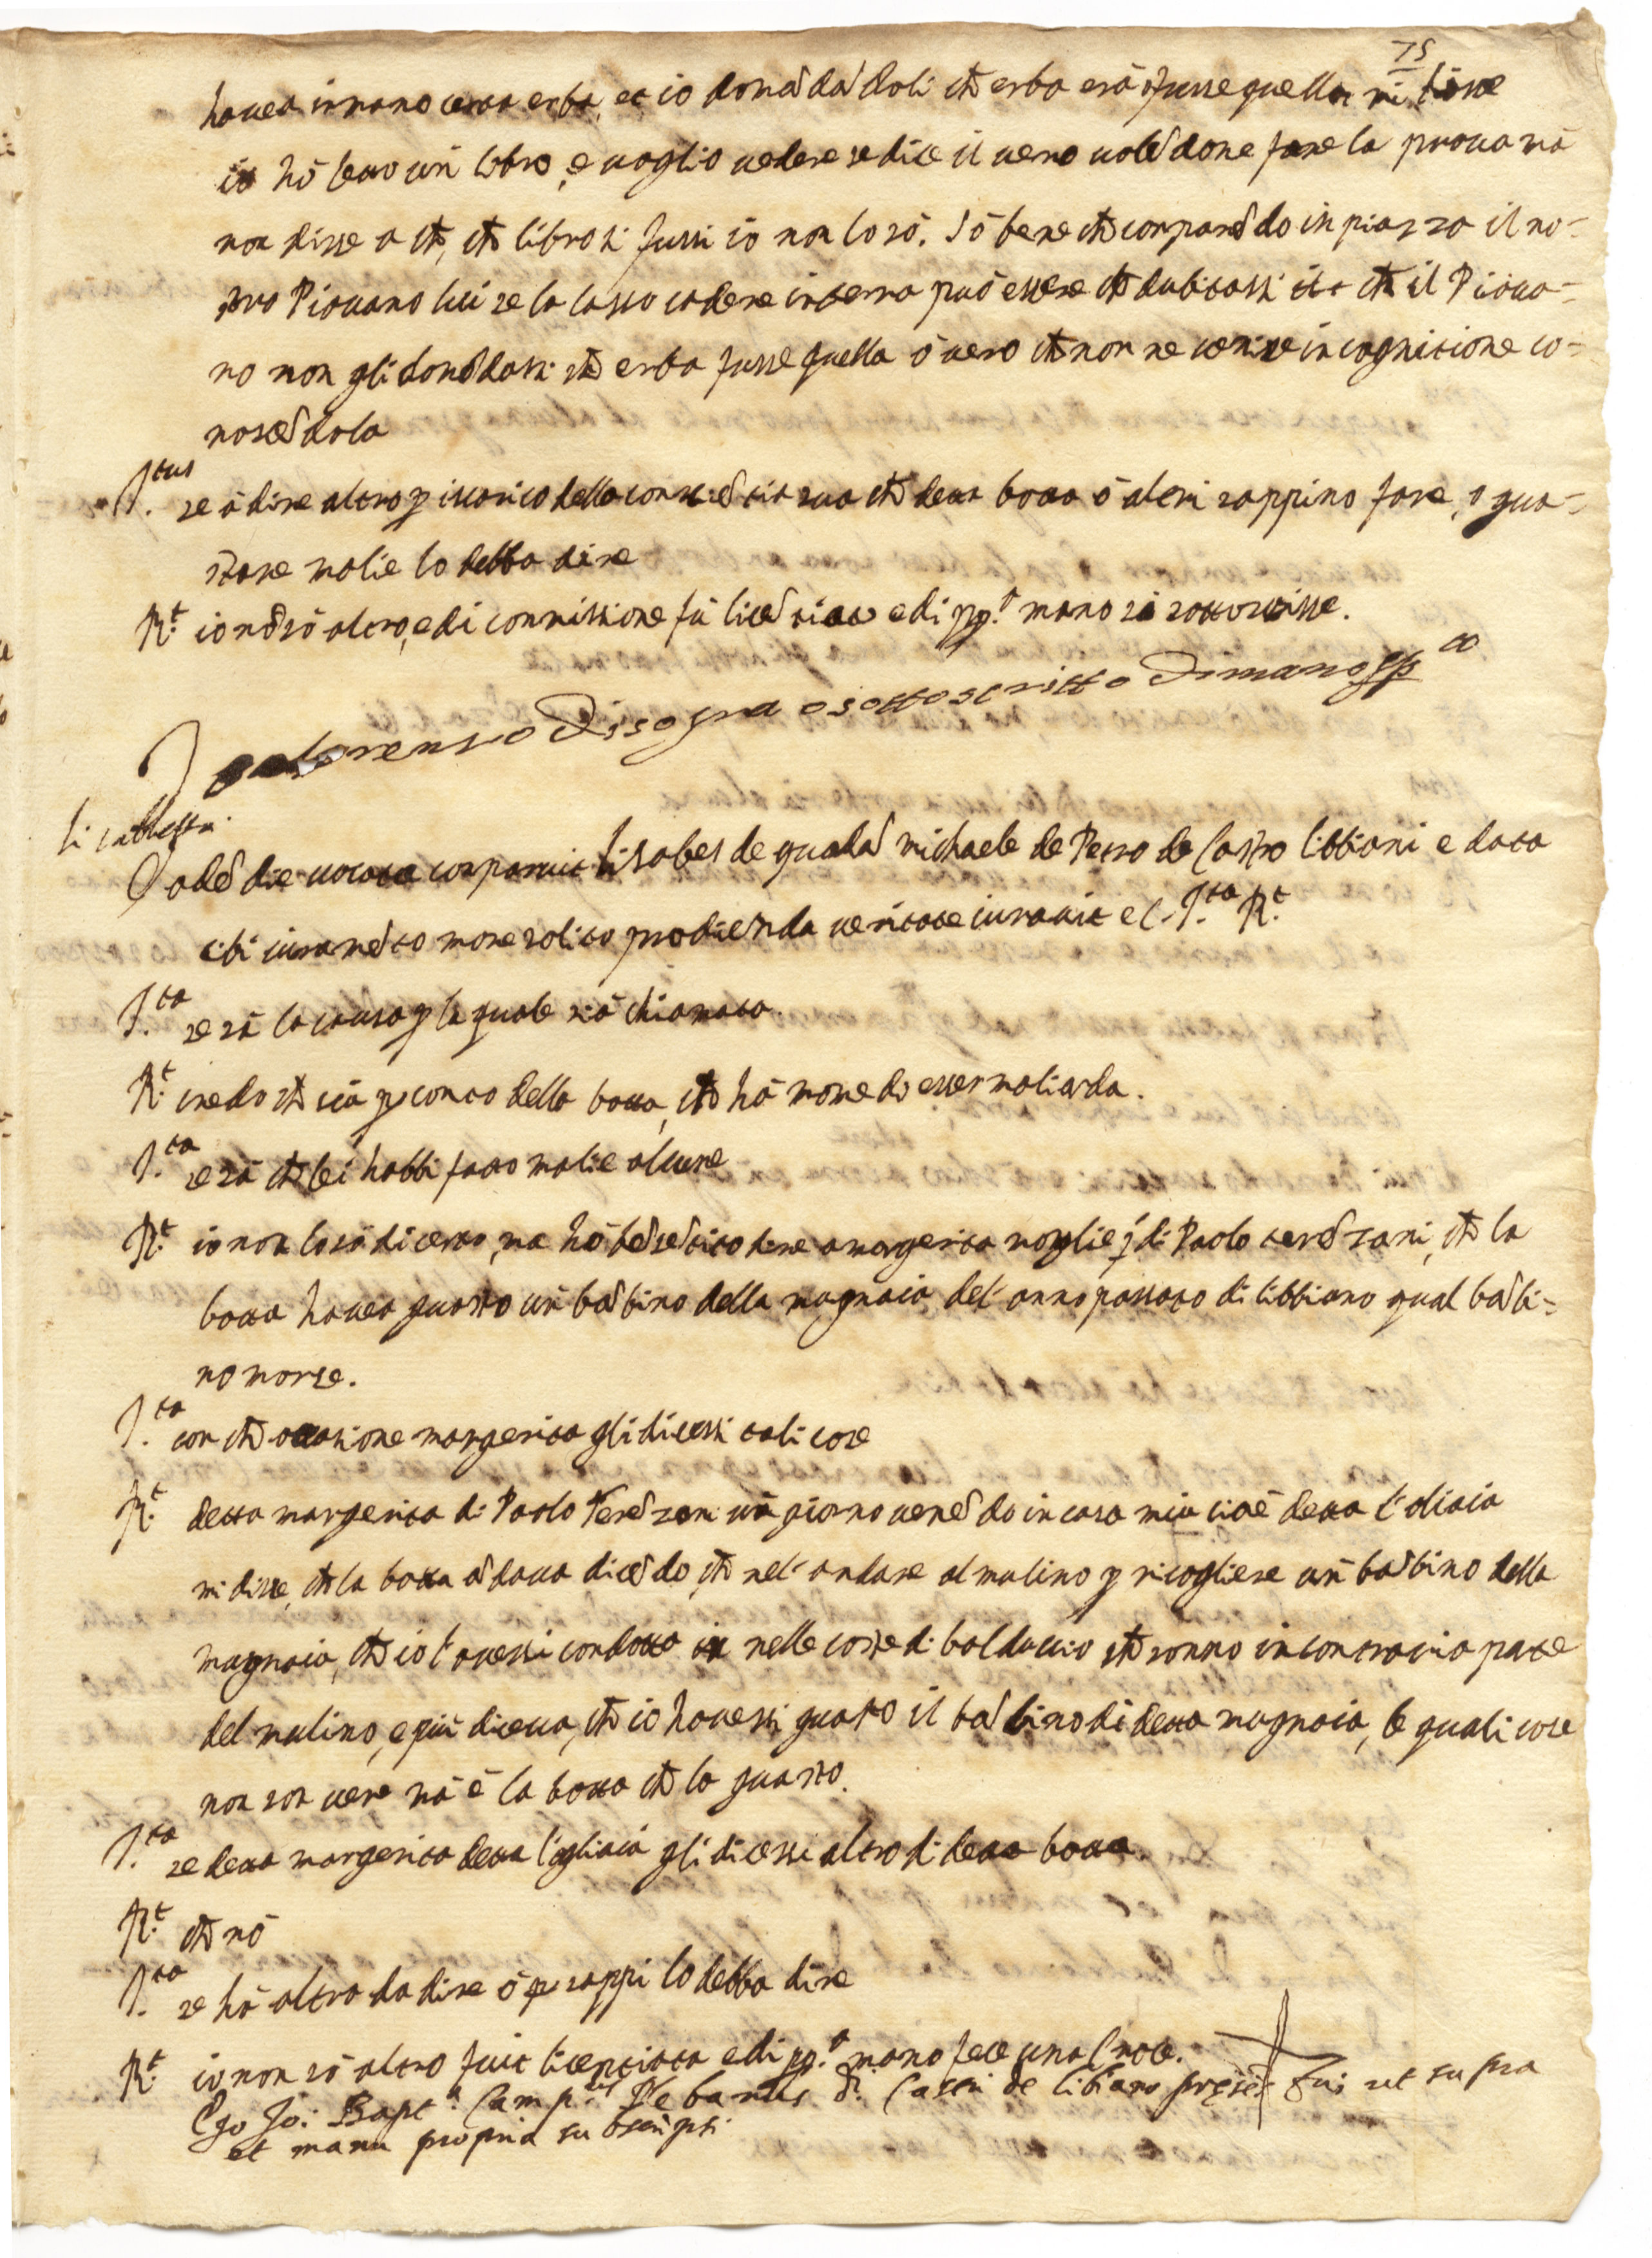 75
havea in mano certa erba, et io domãdãdoli chē erba era o fusse quella mi disse
io hò letto un libro, e voglio vedere se dice il vero volẽdone fare la prova mà
non disse a chē, chē libro si fussi io non lo sò. Sò bene chē comparẽdo in piazza il no=
stro Piovano lui se la lasso cadere in terra può essere chē dubitassi chē il Piova=
no non gli domãdassi chē erba fusse quella ò vero chē non ne venisse in cognitione co=
noscẽdola
I.tus se à dire altro p iscarico della consciẽtia sua chē detta botta ò altri sappino fare, o gua=
stare malie lo debba dire
R.t io nõ sò altro, e di commissione fù licẽtiato e di pp.a mano si sottoscrisse.
Io Lorenzo di sopra o sottoscritto di mano pp a
Lisabetta.
Eadẽ die vocata comparuit Lisabet de quadã michaele de Petro de Castro libbiani e data
sibi iuramẽto more solito pro dicenda veritate iuravit et I.ta R.t
I.ta se sà la causa p la quale sià chiamata.
R.t credo chē sia p conto della botta, chē hà nome di esser maliarda.
I.ta se sà chē lei habbi fatto malie alcune
R.t io non lo sò di certo, ma hò bẽ sẽtito dire a margerita moglie di Paolo terẽzani, chē la
botta havea guasto un bãbino della mugnaia del' anno passato di libbiano qual bãbi=
no morse.
I.ta con chē occasione margerita gli dicessi tali cose
R.t detta margerita di Paolo Terẽzani un giorno venẽdo in casa mia cioè detta l'oliaia
mi disse, chē la botta ãdava dicẽdo, chē nel' andare al mulino p ricogliere un bãbino della
mugnaia, chē io l'avessi condotto nelle coste di balduccio chē sonno in contraria parte
del mulino, e più diceva, chē io havessi guasto il bãbino di detta mugnaia, le quali cose
non son vere mà è la botta chē lo guastò.
I.ta se detta margerita detta l'ogliaia gli dicessi altro di detta botta
R.t chē nò
I.ta se hà altro da dire ò p sappi lo debba dire
R.t io non sò altro fuit licentiata e di pp.a mano fece una Croce.
Ego Jo: Bapt.a Camp.us Plebanus S.i Castri de libiano presẽs fui ut supra
et manu propria subscripsi